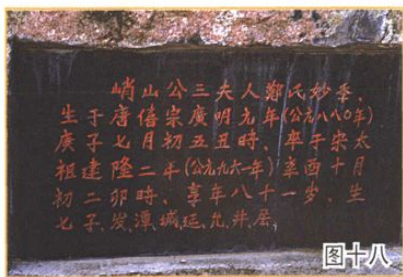 峭山公三夫人鄭氏妙季、
生于唐僖宗廣明元年(公元八八〇年)
庚子七月初五丑時、卒于宋太
祖建隆二年(公元九六一年)辛酉十月
初二卯時、享年八十一岁、生
七子、发、潭、城、延、允、井、层、
图十八